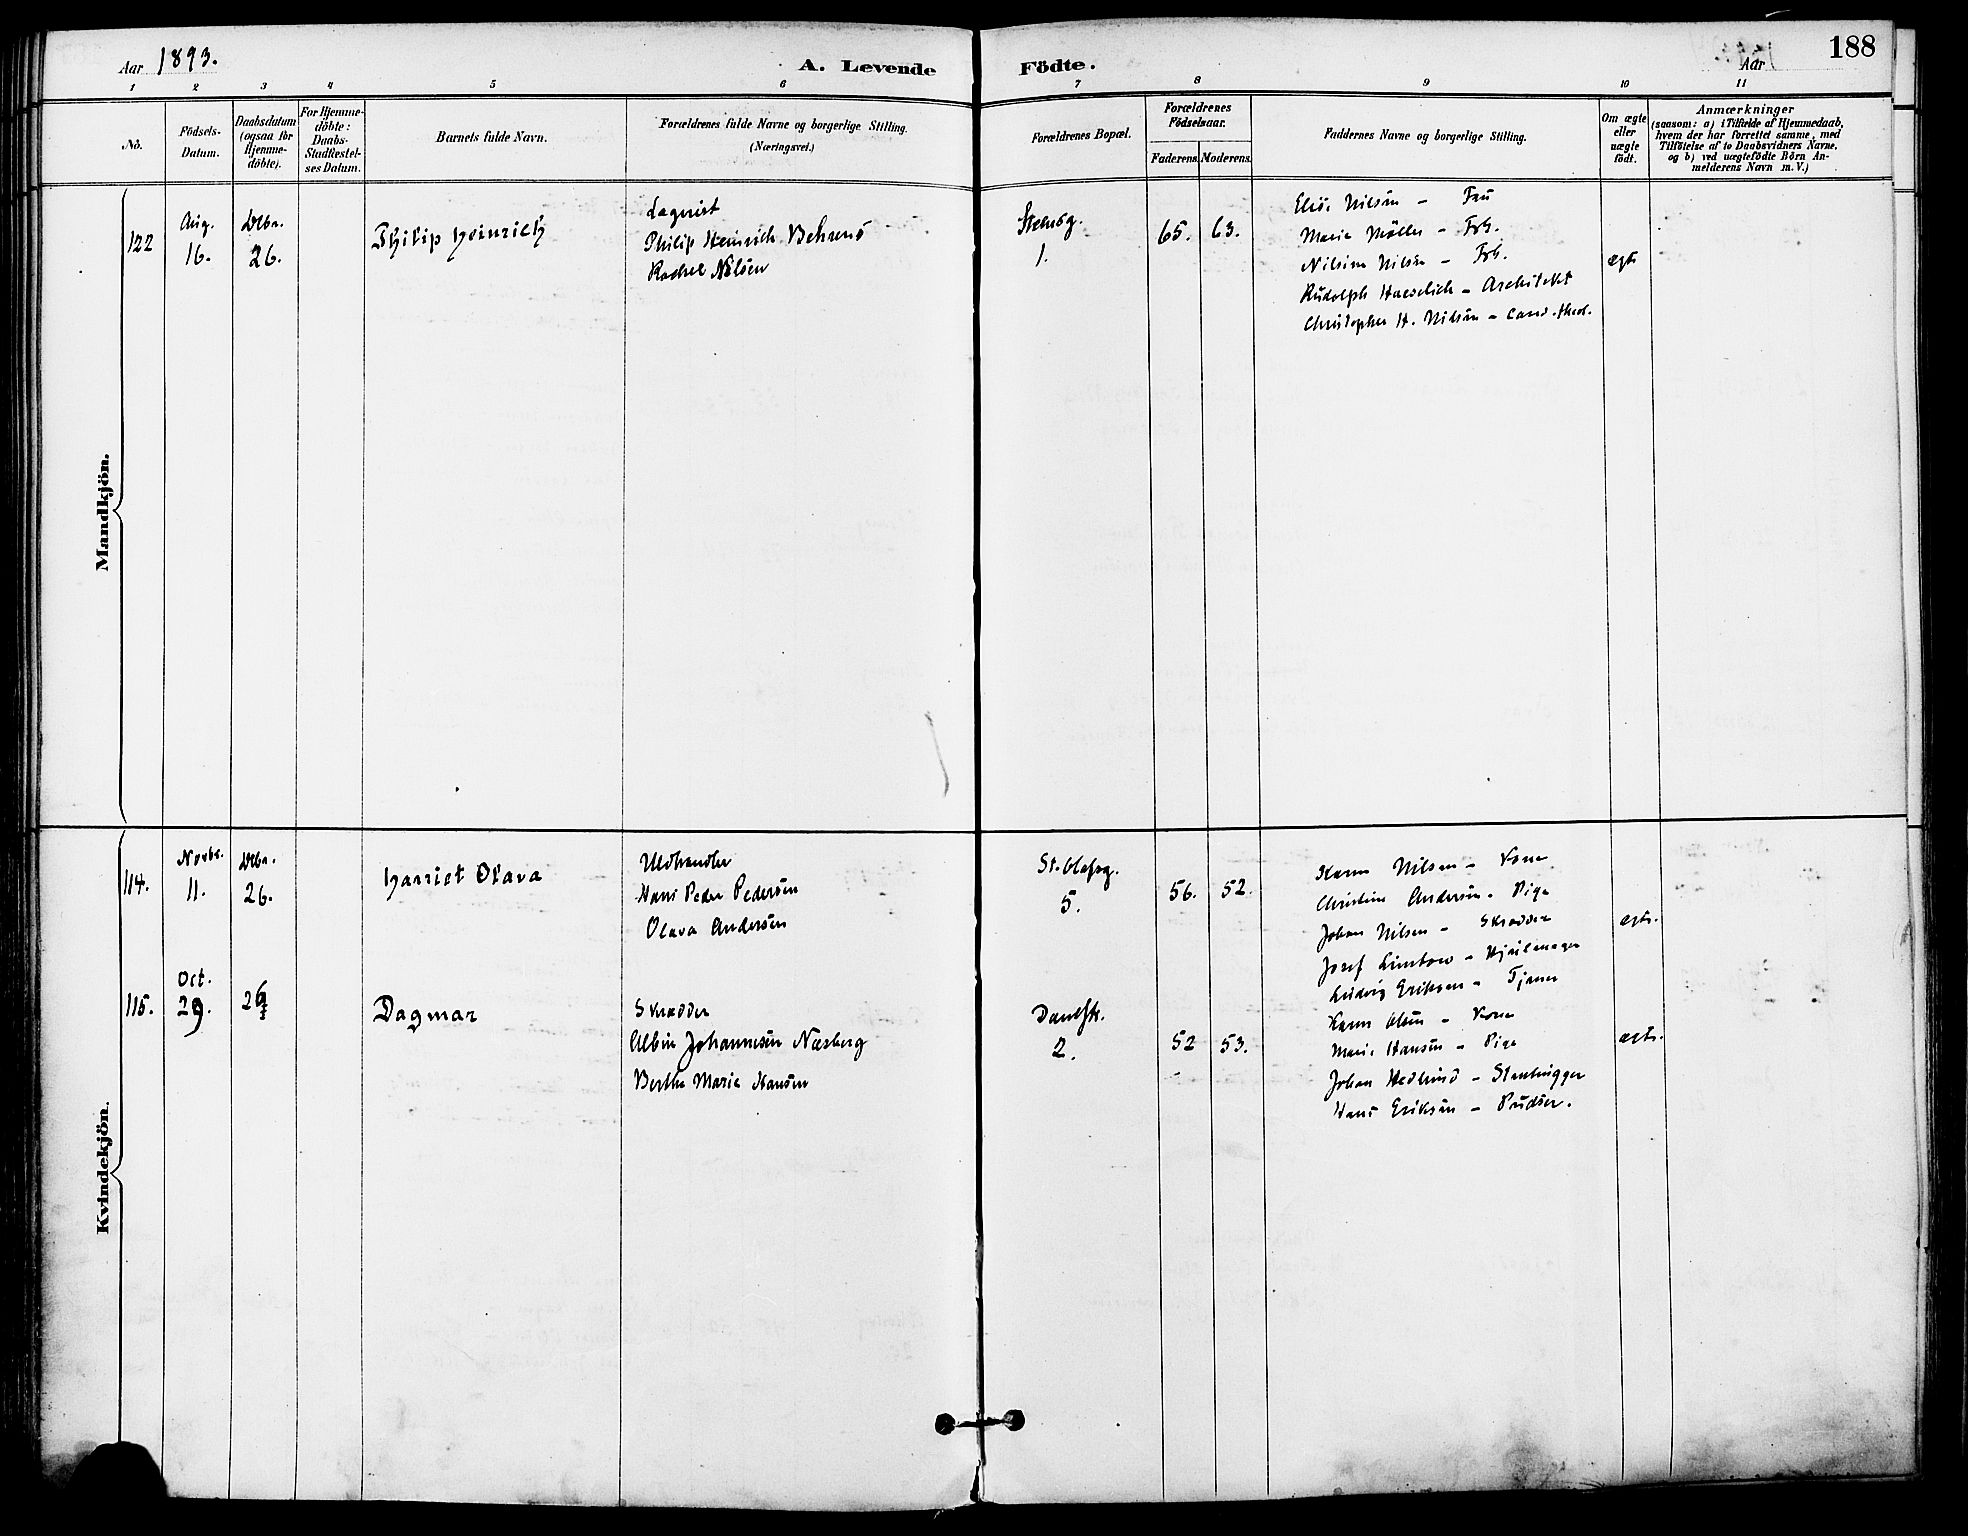 Aar 1893.
A. Levende Födte.
Aar
188
1 2 3 4 5 6 7 8 9 10 11
No.
Födsels-
Datum.
Daabsdatum
(ogsaa för
Hjemme-
döbte).
For Hjemme-
döbte:
Daabs-
Stadfæstel-
ses Datum.
Barnets fulde Navn.
Forældrenes fulde Navne og borgerlige Stilling.
(Næringsvei.)
Forældrenes Bopæl.
Forældrenes
Födselsaar.
Faderens. Moderens.
Faddernes Navne og borgerlige Stilling.
Om ægte
eller
uægte
födt.
Anmærkninger
(saasom: a) i Tilfælde af Hjemmedaab,
hvem der har forrettet samme, med
Tilföielse af to Daabsvidners Navne,
og b) ved uægtefödte Börn An-
melderens Navn m. V.)
Mandkjön.
122
Aug.
16.
Dcbr.
26.
Philip Heinrich
Philip Heinrich Behrens
Rachel Nilsen
Stensbg.
1.
65. 63.
Elise Nilsen - Fru
Marie Möller - Frk.
Nilsine Nilsen - Frk.
Rudolph Haeselich - Architekt
Christopher H. Nilsen - cand. theol.
ægte
Kvindekjön.
114.
Novbr.
11.
Dcbr.
26.
Harriet Olava
Uldhandler
Hans Peder Pedersen
Olava Andersen
St. Olafsg.
5.
56. 52.
Karen Nilsen - Kone
Christine Andersen - Pige
Johan Nilsen - Skrædder
Josef Linstow - Hjulmager
Ludvig Eriksen - Tjener
ægte.
115.
Oct.
29.
26
Dagmar
Skrædder
Albin Johannesen Næsberg
Berthe Marie Hansen
2.
52 53.
Karen Olsen - Kone
Marie Hansen - Pige
Johan Hedlund - Stenhugger
Hans Eriksen - Pudser.
ægte.